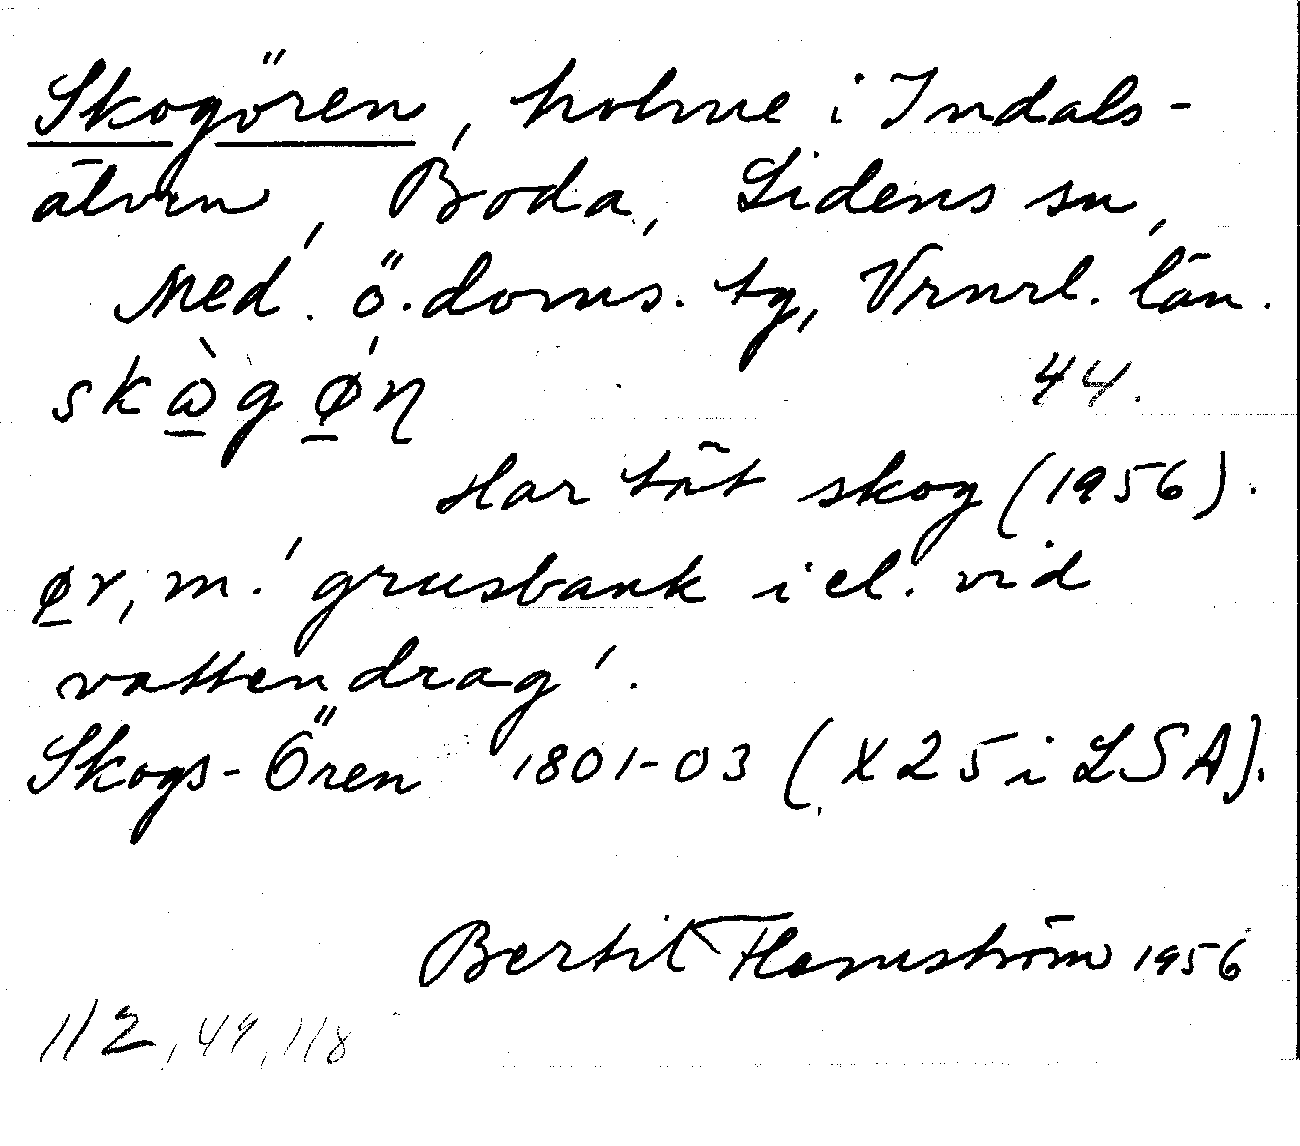 Skogören, holme i Indals-
älven, Boda, Lidens sn,
Med. ö. doms. tg, Vrnrl. län.
skὼ̱gǿ̱ŋ 44.
Har tät skog (1956).
ø̱r, m. ' grusbank i el. vid
vattendrag '.
Skogs-Ören 1801-03 (X 25 i LSA).
Bertil Flemström 1956
112, 49, 118